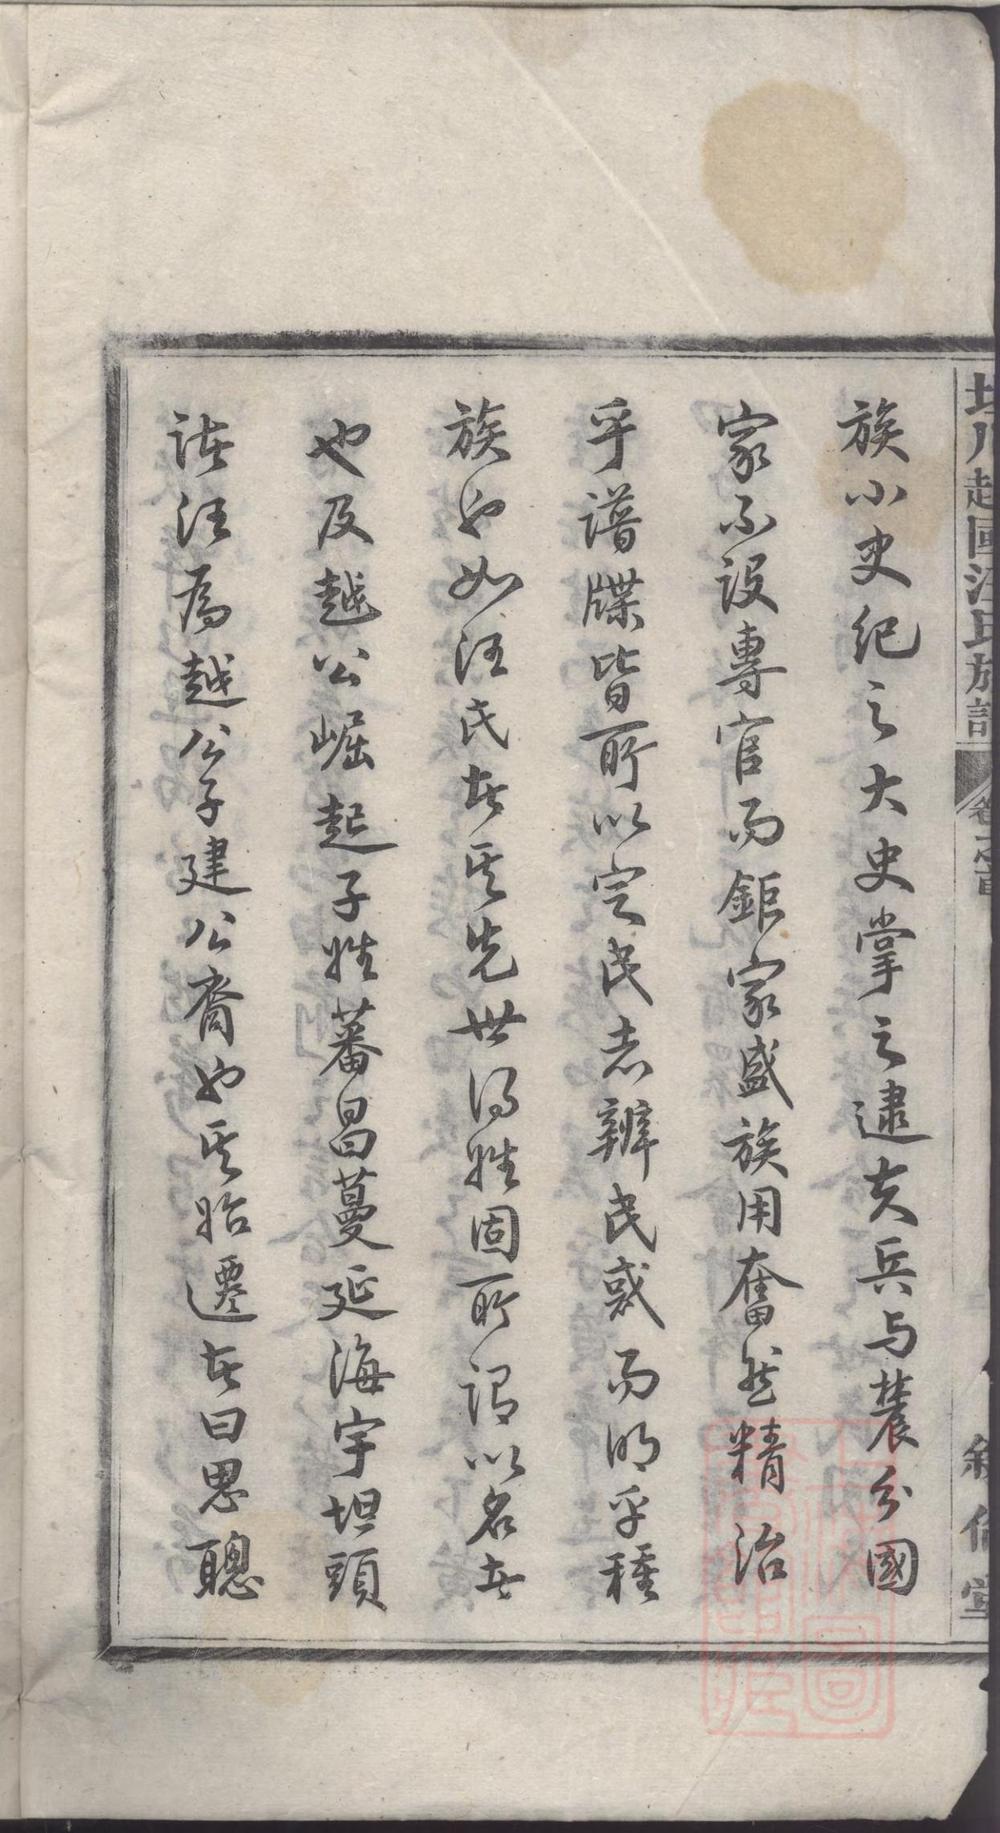 川越國汪氏族譜 卷之首 敘倫堂
族小史紀之大史掌之逮夫兵与農分國
家不設專官而鉅家盛族用奮然精治
乎譜牒皆所以定民志辨民惑而明乎種
族也如汪氏者其先世得姓固所謂以名者
也及越公崛起子姓蕃昌蔓延海宇坦頭
諸汪為越公子建公裔也其始遷者曰思聰